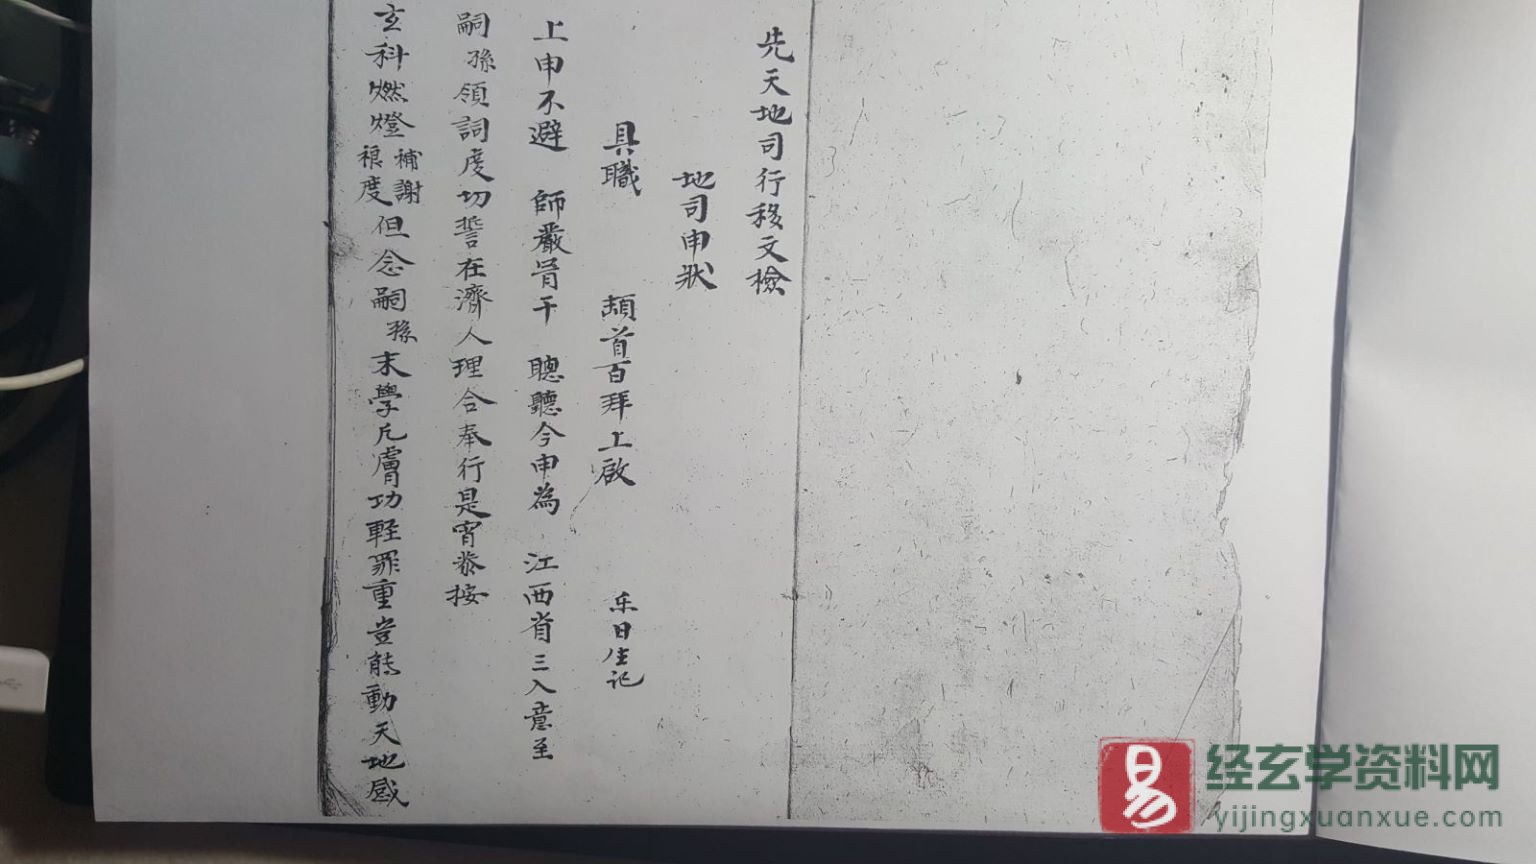 先天地司行移文檢
地司申狀
具職 頓首百拜上啟 乐日生记
上申不避 師嚴冒干 聰聽今申為 江西省三入意至
嗣孫領詞度切誓在濟人理合奉行是宵恭按
玄科燃燈補謝禳度但念嗣孫末學凡膚功輕罪重豈能動天地感
易 经玄学资料网
yijingxuanxue.com